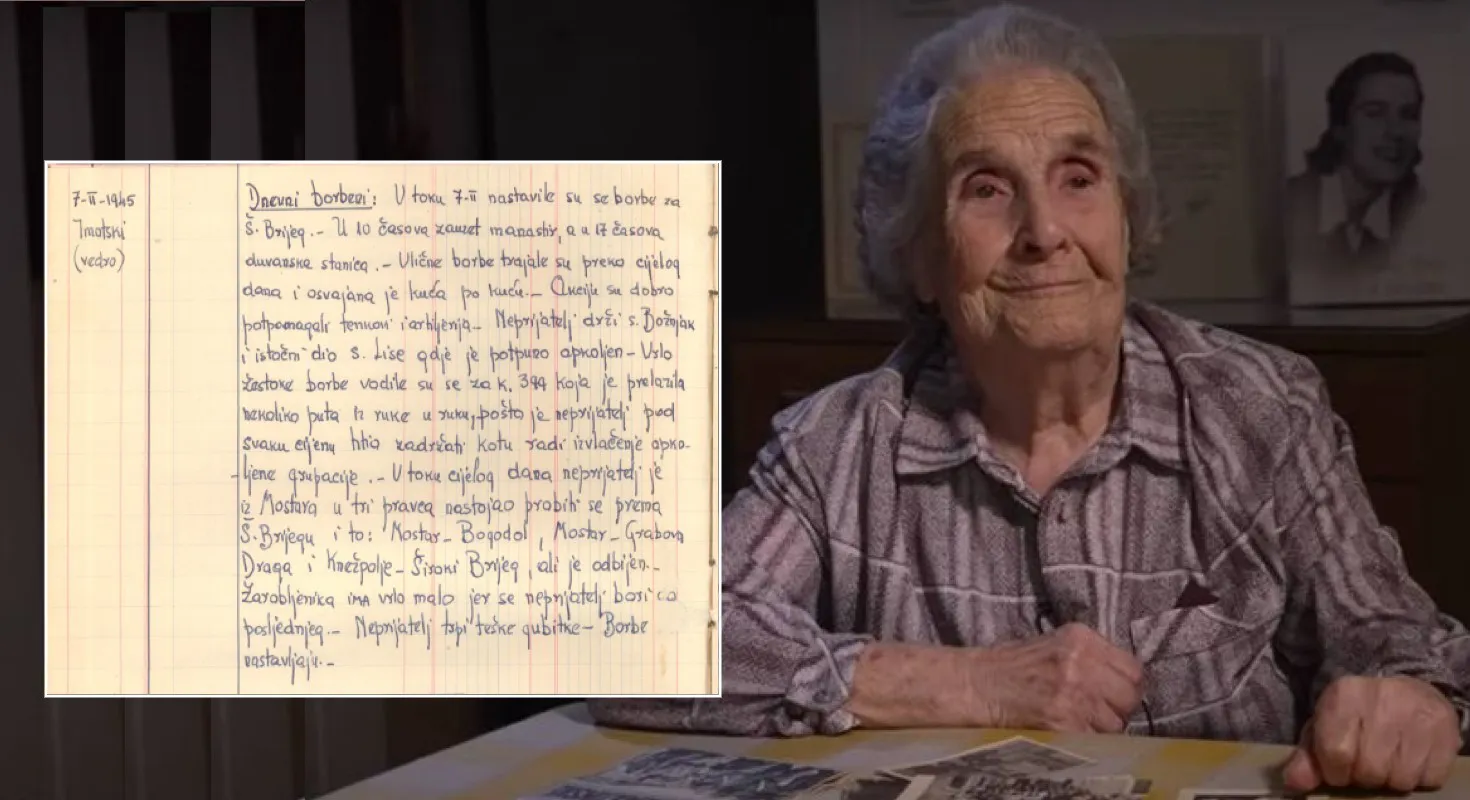 7-II-1945
Imotski
(vedro)
Dnevni borbeni: U toku 7-II nastavile su se borbe za
Š. Brijeg.- U 10 časova zauzet manastir, a u 17 časova
duvanska stanica.- Ulične borbe trajale su preko cijelog
dana i osvajana je kuća po kuću.- Akciju su dobro
potpomagali tenkovi i artiljerija.- Neprijatelj drži s.
i istočni dio s. Lise gdje je potpuno opkoljen- Vrlo
žestoke borbe vodile su se za k. 394 koja je prelazila
nekoliko puta iz ruke u ruku, pošto je neprijatelj pod
svaku cijenu htio zadržati kotu radi izvlačenje opko-
-ljene grupacije.- U toku cijelog dana neprijatelj je
iz Mostara u tri pravca nastojao probiti se prema
Š. Brijegu i to: Mostar- Bogodol, Mostar- Grabova
Draga i Knežpolje- Široki Brijeg, ali je odbijen.-
Zarobljenika IMA vrlo malo jer se neprijatelj bori do
posljednjeg.- Neprijatelj trpi teške gubitke- Borbe
nastavljaju.-